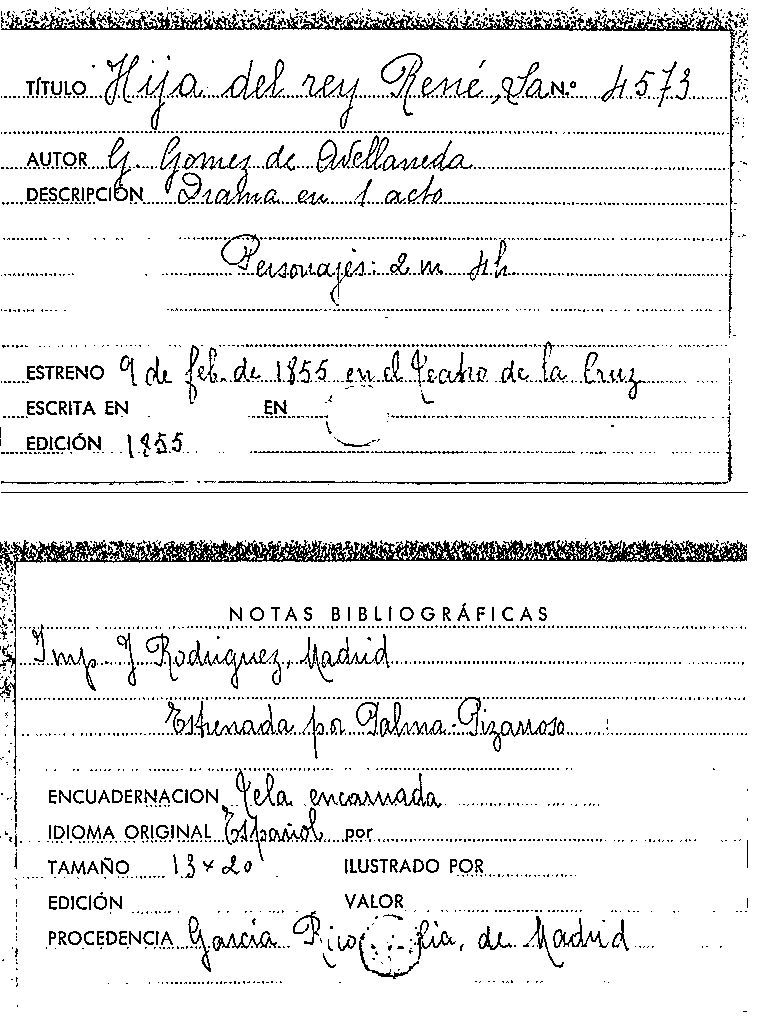 TÍTULO Hija del rey René, La N.º 4573
AUTOR G. Gomez de Avellaneda
DESCRIPCIÓN Drama en 1 acto
Personajes: 2 m 4h
ESTRENO 9 de feb. de 1855 en el Teatro de la Cruz
ESCRITA EN EN
EDICIÓN 1855
NOTAS BIBLIOGRÁFICAS
Imp. J. Rodriguez, Madrid
Estrenada por Palma-Pizarroso
ENCUADERNACION Tela encarnada
IDIOMA ORIGINAL Español por
TAMAÑO 13 x 20 ILUSTRADO POR
EDICIÓN VALOR
PROCEDENCIA García Rico de Madrid